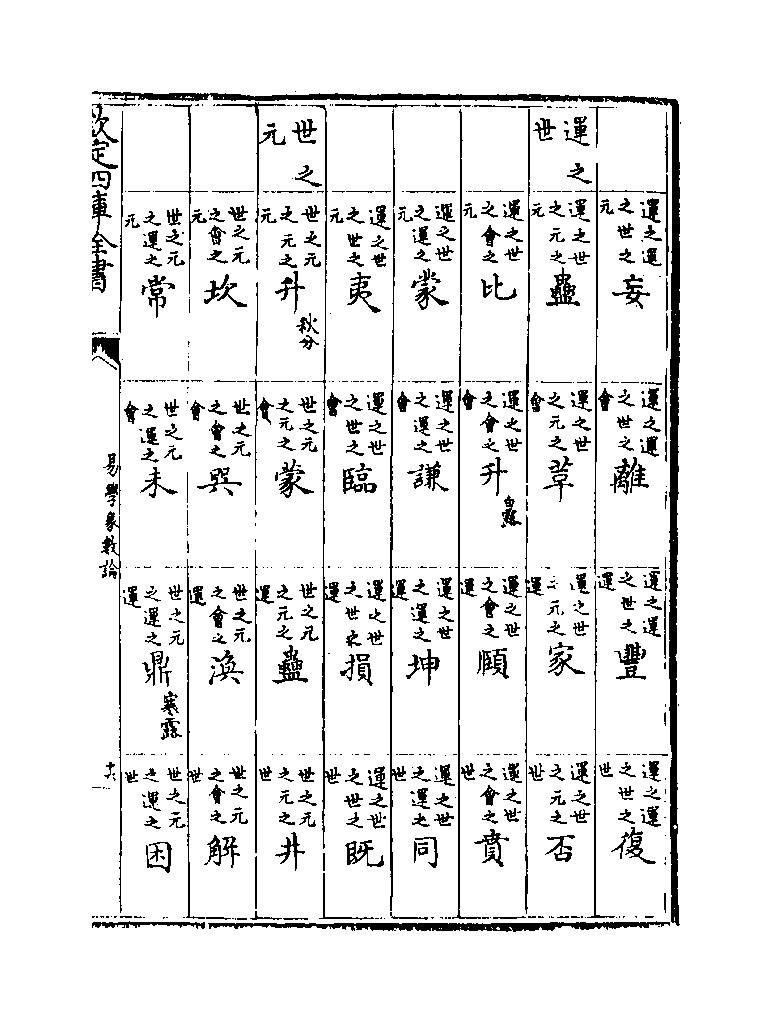 運之運之世之元 妄 運之運之世之會 離 運之運之世之運 豐 運之運之世之世 復
運之世 運之世之元之元 蠱 運之世之元之會 革 運之世之元之運 家 運之世之元之世 否
運之世之會之元 比 運之世之會之會 升 白露 運之世之會之運 頤 運之世之會之世 賁
運之世之運之元 蒙 運之世之運之會 謙 運之世之運之運 坤 運之世之運之世 同
運之世之世之元 夷 運之世之世之會 臨 運之世之世之運 損 運之世之世之世 既
世之元 世之元之元之元 升 秋分 世之元之元之會 蒙 世之元之元之運 蠱 世之元之元之世 井
世之元之會之元 坎 世之元之會之會 巽 世之元之會之運 渙 世之元之會之世 解
世之元之運之元 常 世之元之運之會 未 世之元之運之運 鼎 寒露 世之元之運之世 困
欽定四庫全書 易學象數論 十六